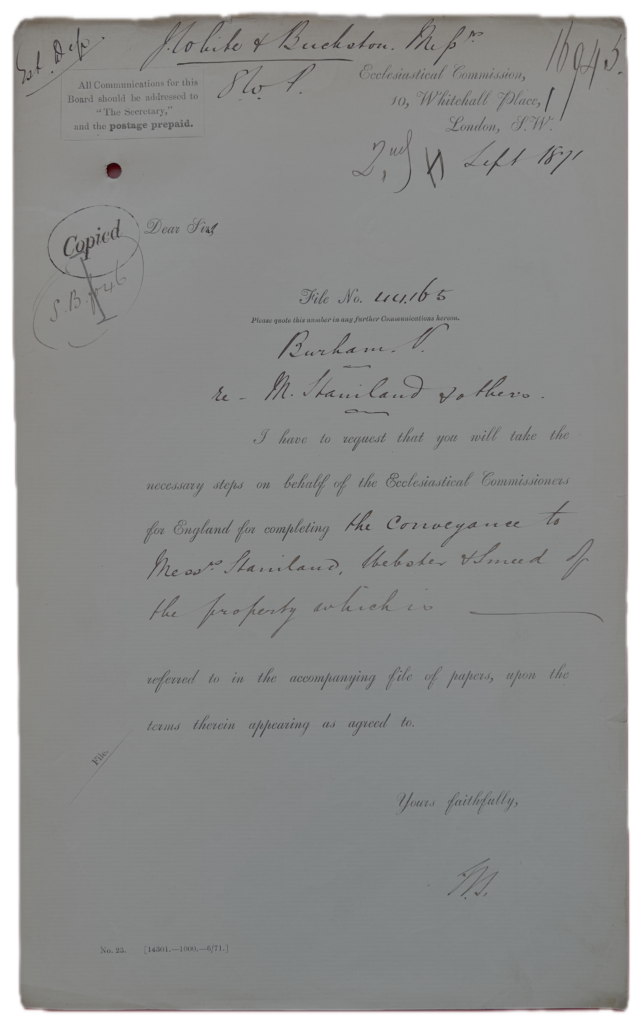 Est. Dep.
J. White & Buckston. Messrs
16943.
All Communications for this
Board should be addressed to
"The Secretary,"
and the postage prepaid.
Ecclesiastical Commission,
10, Whitehall Place,
London, S.W.
2nd Sept 1871
Copied
S.B.
Dear Sirs
File No. 44165
Please quote this number in any further Communications hereon.
Burham. V.
re - M. Staniland & others.
I have to request that you will take the
necessary steps on behalf of the Ecclesiastical Commissioners
for England for completing the Conveyance to
Messrs Staniland, Webster & Smeed of
the property which is
referred to in the accompanying file of papers, upon the
terms therein appearing as agreed to.
File
Yours faithfully,
No. 23. [14301.—1000.—6/71.]